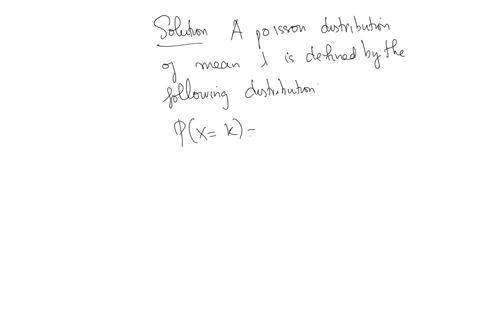 Solution A poisson distribution
of mean λ is defined by the
following distribution
P(x = k) =